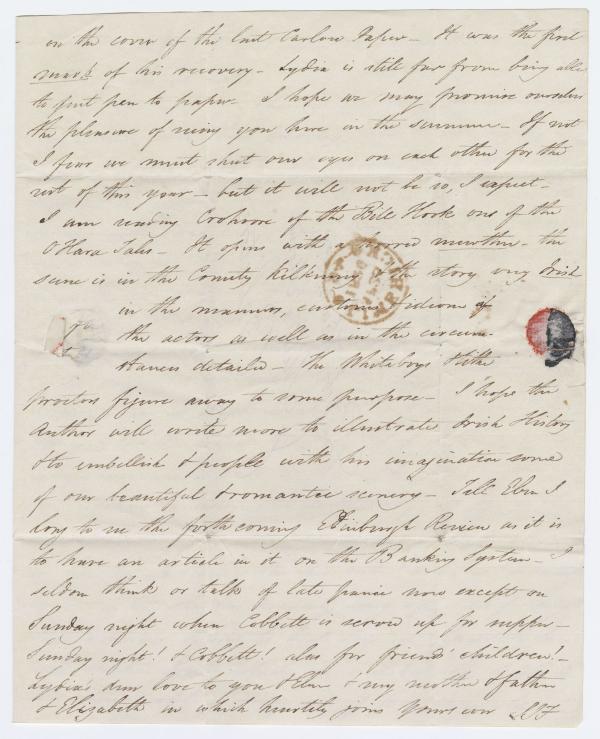 on the cover of the last Carlow Paper – It was the first
mark of his recovery – Lydia is still far from being able
to put pen to paper – I hope we may promise ourselves
the pleasure of seeing you here in the summer – If not
I fear we must shut our eyes on each other for the
rest of this year – but it will not be so, I expect –
I am reading Croohore of the Bill Hook one of the
O'Hara Tales – It opens with a horrid murther – the
scene is in the County Kilkenny & the story very Irish
in the manners, customs & idiom of
the actors as well as in the circum-
stances detailed – The Whiteboys & tithe
proctors figure away to some purpose – I hope the
Author will write more to illustrate Irish History
& to embellish & people with his imagination some
of our beautiful & romantic scenery – Tell Eben I
long to see the forthcoming Edinburgh Review as it is
to have an article in it on the Banking System – I
seldom think or talk of late panic now except on
Sunday night when Cobbett is served up for supper –
Sunday night! & Cobbett! alas for friends' children! –
Lydia's dear love to you & Eben & my mother & father
& Elizabeth in which heartily joins Yours ever